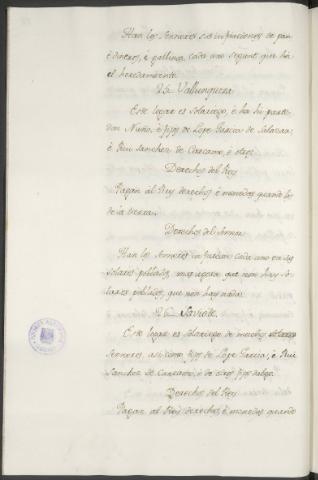 Han los Señores sus infurciones de pan
é dineros, é gallina, cada uno segunt que ha
el heredamiento.
25 Vallunquera
Este logar es Solariego, é ha hi parte
Don Nuño, é fijos de Lope Garcia de Salazar,
é Rui Sanchez de Carcamo, é otros.
Derechos del Rey
Pagan al Rey derechos é monedas quando los
de la tierra.
Derechos del Señor
Han los Señores infurcion cada uno en sus
solares poblados, mas agora que non hay So-
lares poblados, que non hay nada.
26
Este logar es solariego de muchos
Señores, asi como fijos de Lope Garcia, é Rui
Sanchez de Carcamo, é de otros fijos dalgo.
Derechos del Rey
Pagan al Rey derechos, é monedas quando